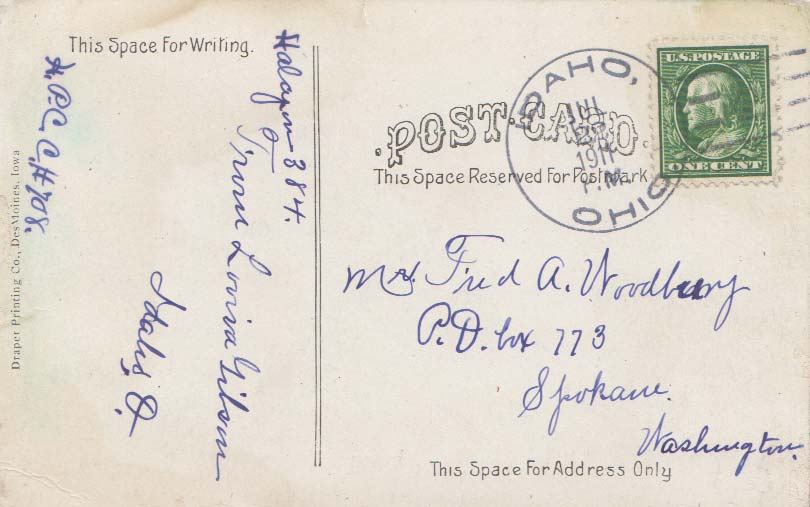 This Space For Writing.
Halcyon 384.
From Lovira Gibson
Idaho, O.
A.P.C.C.#708.
Draper Printing Co., Des Moines, Iowa
POST CARD.
This Space Reserved For Postmark
IDAHO,
JUL
1911
P.M.
OHIO
U.S. POSTAGE
ONE CENT
Mr. Fred A. Woodbury
P.O. box 773
Spokane.
Washington.
This Space For Address Only